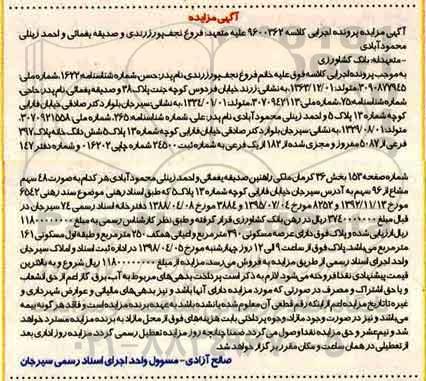 آگهی مزایده
آگهی مزایده پرونده اجرایی کلاسه ۹۶۰۰۳۶۲ علیه متعهد: فروغ نجف پور زرندی و صدیقه یغمائی و احمد زینلی
محمودآبادی
- متعهدله: بانک کشاورزی
به موجب پرونده اجرایی کلاسه فوق علیه خانم فروغ نجف پور زرندی، نام پدر: حسن، شماره شناسنامه: ۱۶۲۲، شماره ملی:
۳۰۹۰۸۷۷۹۴۵، متولد: ۱۳۶۳/۱۲/۰۱، به نشانی: زرند خیابان فردوس کوچه جنت پلاک ۳۸ و صدیقه یغمائی نام پدر: حاجی،
شماره شناسنامه: ۷۵، شماره ملی: ۳۰۷۰۹۴۷۱۱۳، متولد: ۱۳۳۴/۰۱/۰۱، به نشانی: سیرجان بلوار دکتر صادقی خیابان فارابی
کوچه شماره ۱۳ پلاک ۵ و احمد زینلی محمودآبادی نام پدر: علی، شماره شناسنامه: ۲۶۵، شماره ملی: ۳۰۷۰۹۲۱۵۵۸،
متولد: ۱۳۲۹/۰۸/۰۱، به نشانی: سیرجان بلوار دکتر صادقی خیابان فارابی کوچه شماره ۱۳ پلاک ۵ شش دانگ خانه پلاک ۳۹۷
فرعی از ۵۰۸۷ مفروز و مجزی شده از ۱۸۲ از یک فرعی به شماره ثبت ۲۴۵۰۰ شماره چاپی ۰۱۶۲۰۲ و شماره دفتر ۱۴۷
شماره صفحه ۱۵۳ بخش ۳۶ کرمان ملکی راهنین صدیقه یغمائی و احمد زینلی محمودآبادی هر کدام به صورت ۴۸ سهم
مشاع از ۹۶ سهم به آدرس سیرجان خیابان فارابی کوچه شماره ۱۳ پلاک ۵ که طبق اسناد رهنی موضوع سند رهنی ۶۵۴۲
مورخ ۱۳۹۲/۱۱/۱۲ و ۸۲۵۲ مورخ ۱۳۹۵/۰۷/۰۴ و ۳۸۸۴ مورخ ۱۳۸۸/۰۴/۰۸ دفترخانه اسناد رسمی ۷۴ سیرجان در
قبال مبلغ ۳۷۴۰۰۰۰۰۰۰ ریال در رهن بانک کشاورزی قرار گرفته و طبق نظر کارشناس رسمی به مبلغ ۱۱۸۰۰۰۰۰۰۰۰
ریال ارزیابی شده و پلاک فوق دارای عرصه مسکونی ۳۹۰ مترمربع و اعیانی همکف ۲۵۰ مترمربع و طبقه اول مسکونی ۱۶۱
مترمربع می‌باشد. پلاک فوق از ساعت ۹ الی ۱۲ روز چهارشنبه مورخ ۱۳۹۸/۰۴/۰۵ در اداره ثبت اسناد و املاک سیرجان
واحد اجرای اسناد رسمی از طریق مزایده به فروش می‌رسد. مزایده از مبلغ ۱۱۸۰۰۰۰۰۰۰۰ ریال شروع و به بالاترین
قیمت پیشنهادی نقدا فروخته می‌شود. لازم به ذکر است پرداخت بدهی‌های مربوط به آب، برق، گاز اعم از حق انشعاب
و یا حق اشتراک و مصرف در صورتی که مورد مزایده دارای آنها باشد و نیز بدهی‌های مالیاتی و عوارض شهرداری و
غیره تا تاریخ مزایده اعم از اینکه رقم قطعی آن معلوم شده یا نشده باشد به عهده برنده مزایده است و فاقد هرگونه بیمه
می‌باشد و نیز در صورت وجود مازاد، وجوه پرداختی بابت هزینه‌های فوق از محل مازاد به برنده مزایده مسترد خواهد
شد و نیم عشر و حق مزایده نقدا وصول می‌گردد. ضمنا چنانچه روز مزایده تعطیل رسمی گردد، مزایده روز اداری بعد
از تعطیلی در همان ساعت و مکان مقرر برگزار خواهد شد.
صالح آزادی - مسوول واحد اجرای اسناد رسمی سیرجان